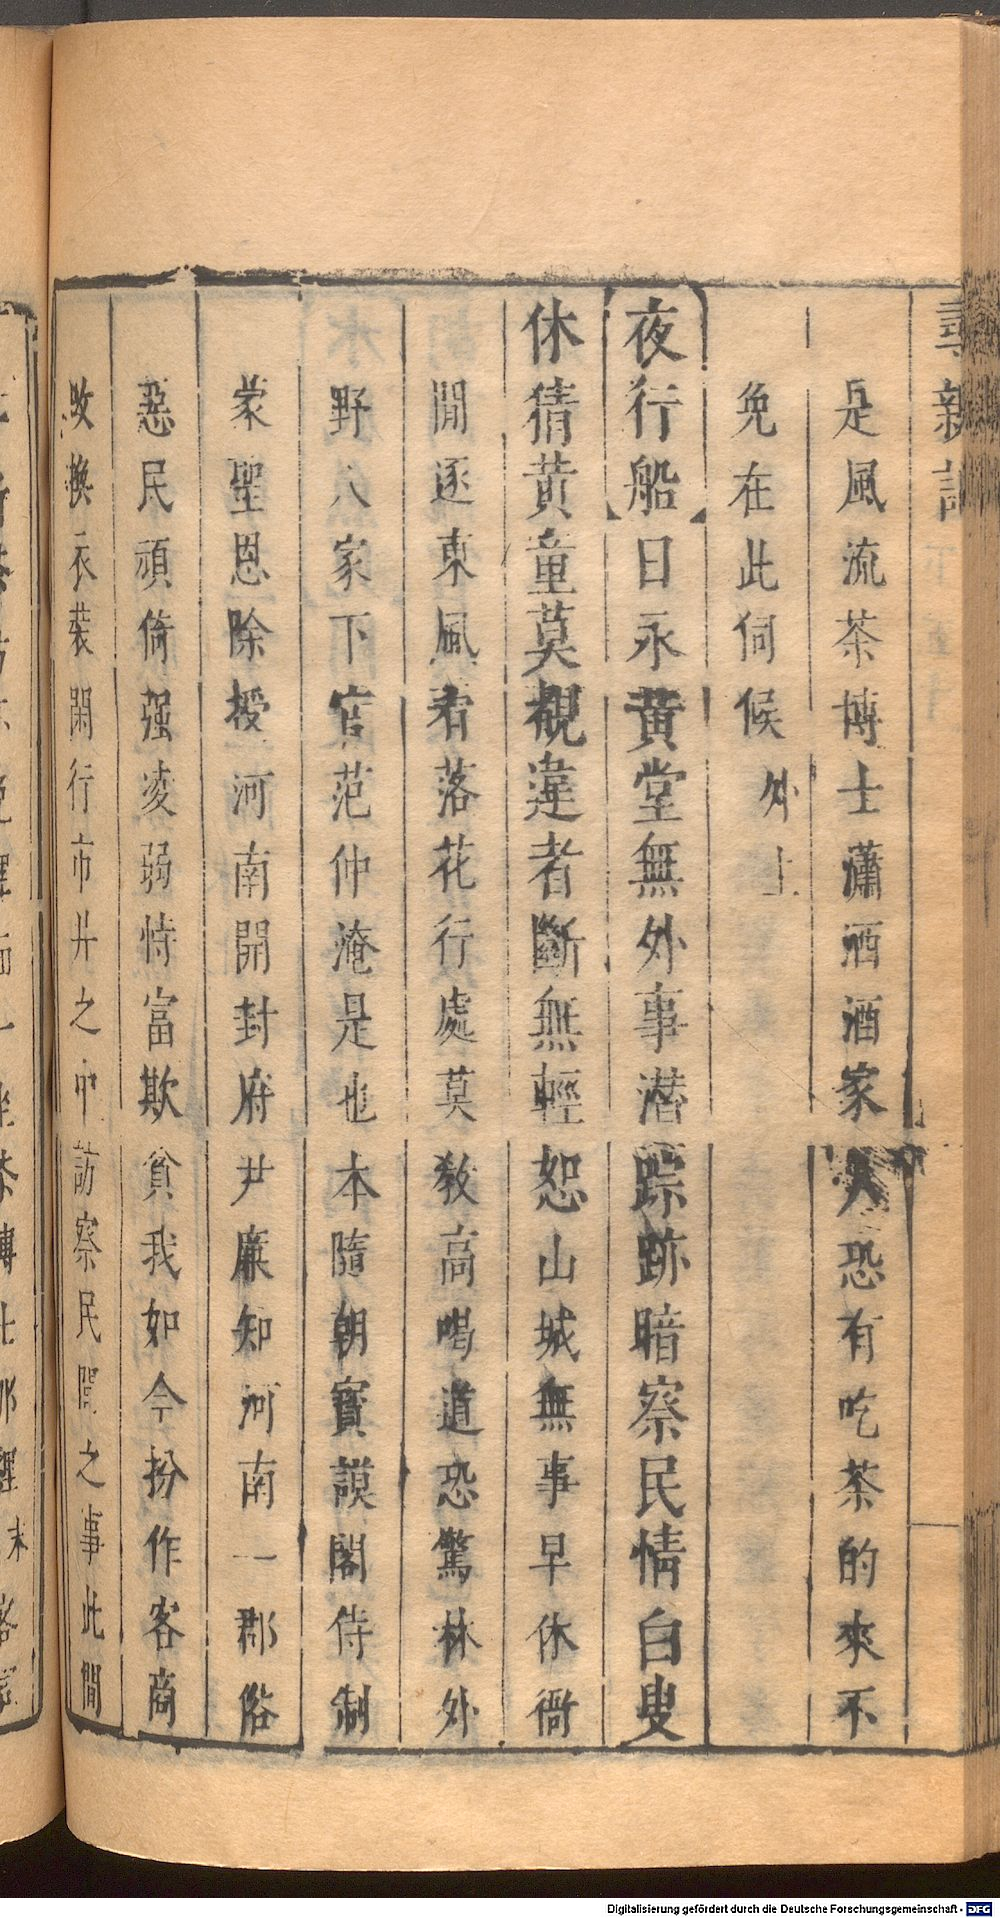 尋親記
是風流茶博士瀟洒酒家人恐有吃茶的來不
免在此伺候 外上
夜行船 日永黄堂無外事潜踪跡暗察民情白叟
休猜黄童莫覩違者斷無輕恕山城無事早休衙
閒逐東風看落花行處莫教高喝道恐驚林外
野人家下官范仲淹是也本隨朝寳謨閣侍制
蒙聖恩除授河南開封府尹廉知河南一郡俗
惡民頑倚强凌弱恃富欺貧我如今扮作客商
改換衣裝閑行市井之中訪察民間之事此間
Digitalisierung gefördert durch die Deutsche Forschungsgemeinschaft - DFG